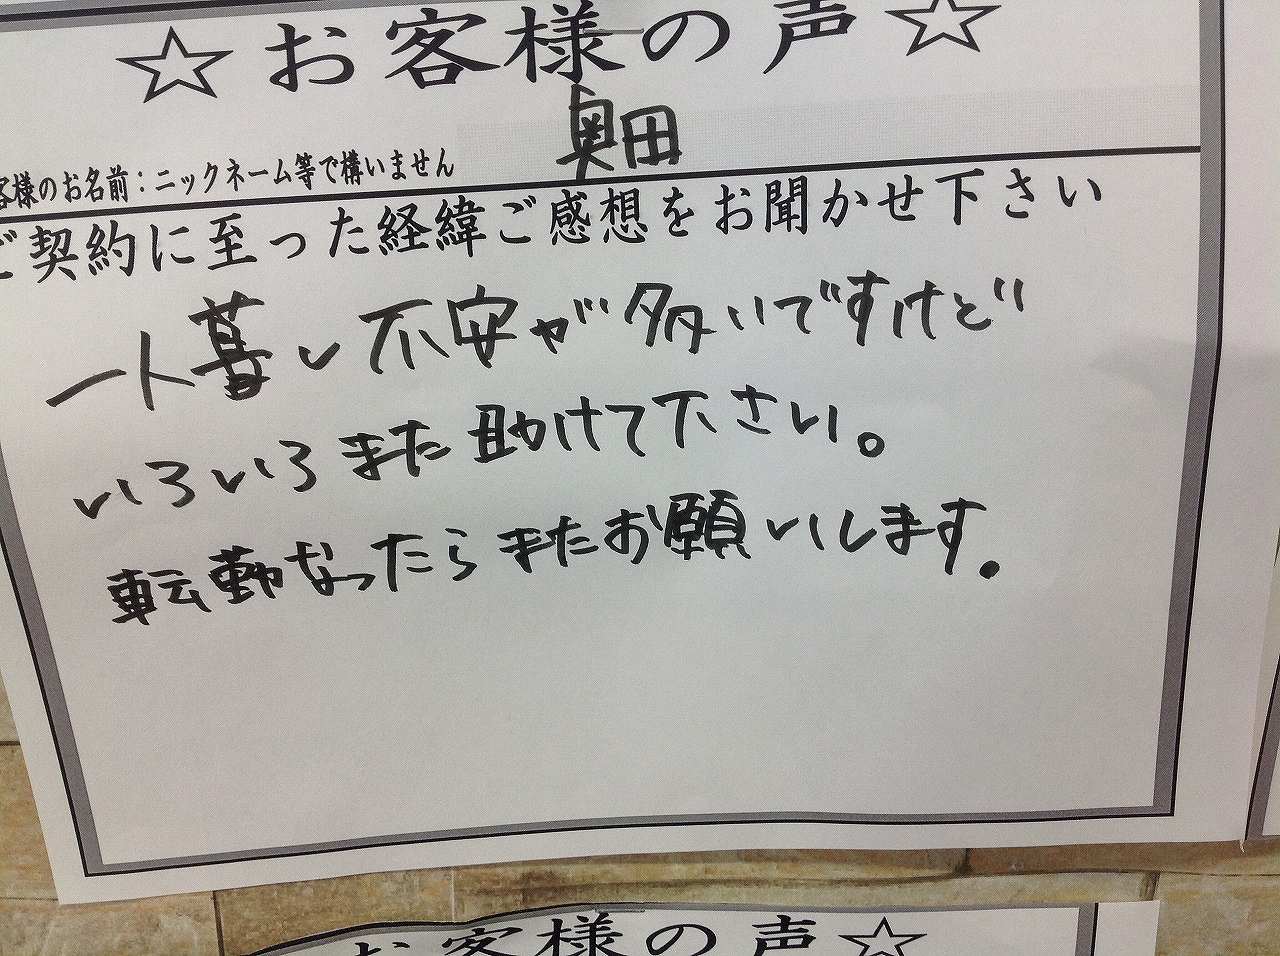 ☆お客様の声☆
奥田
客様のお名前：ニックネーム等で構いません
ご契約に至った経緯ご感想をお聞かせ下さい
一人暮し不安が多いですけど
いろいろまた助けて下さい。
転勤なったらまたお願いします。
お客様の声☆